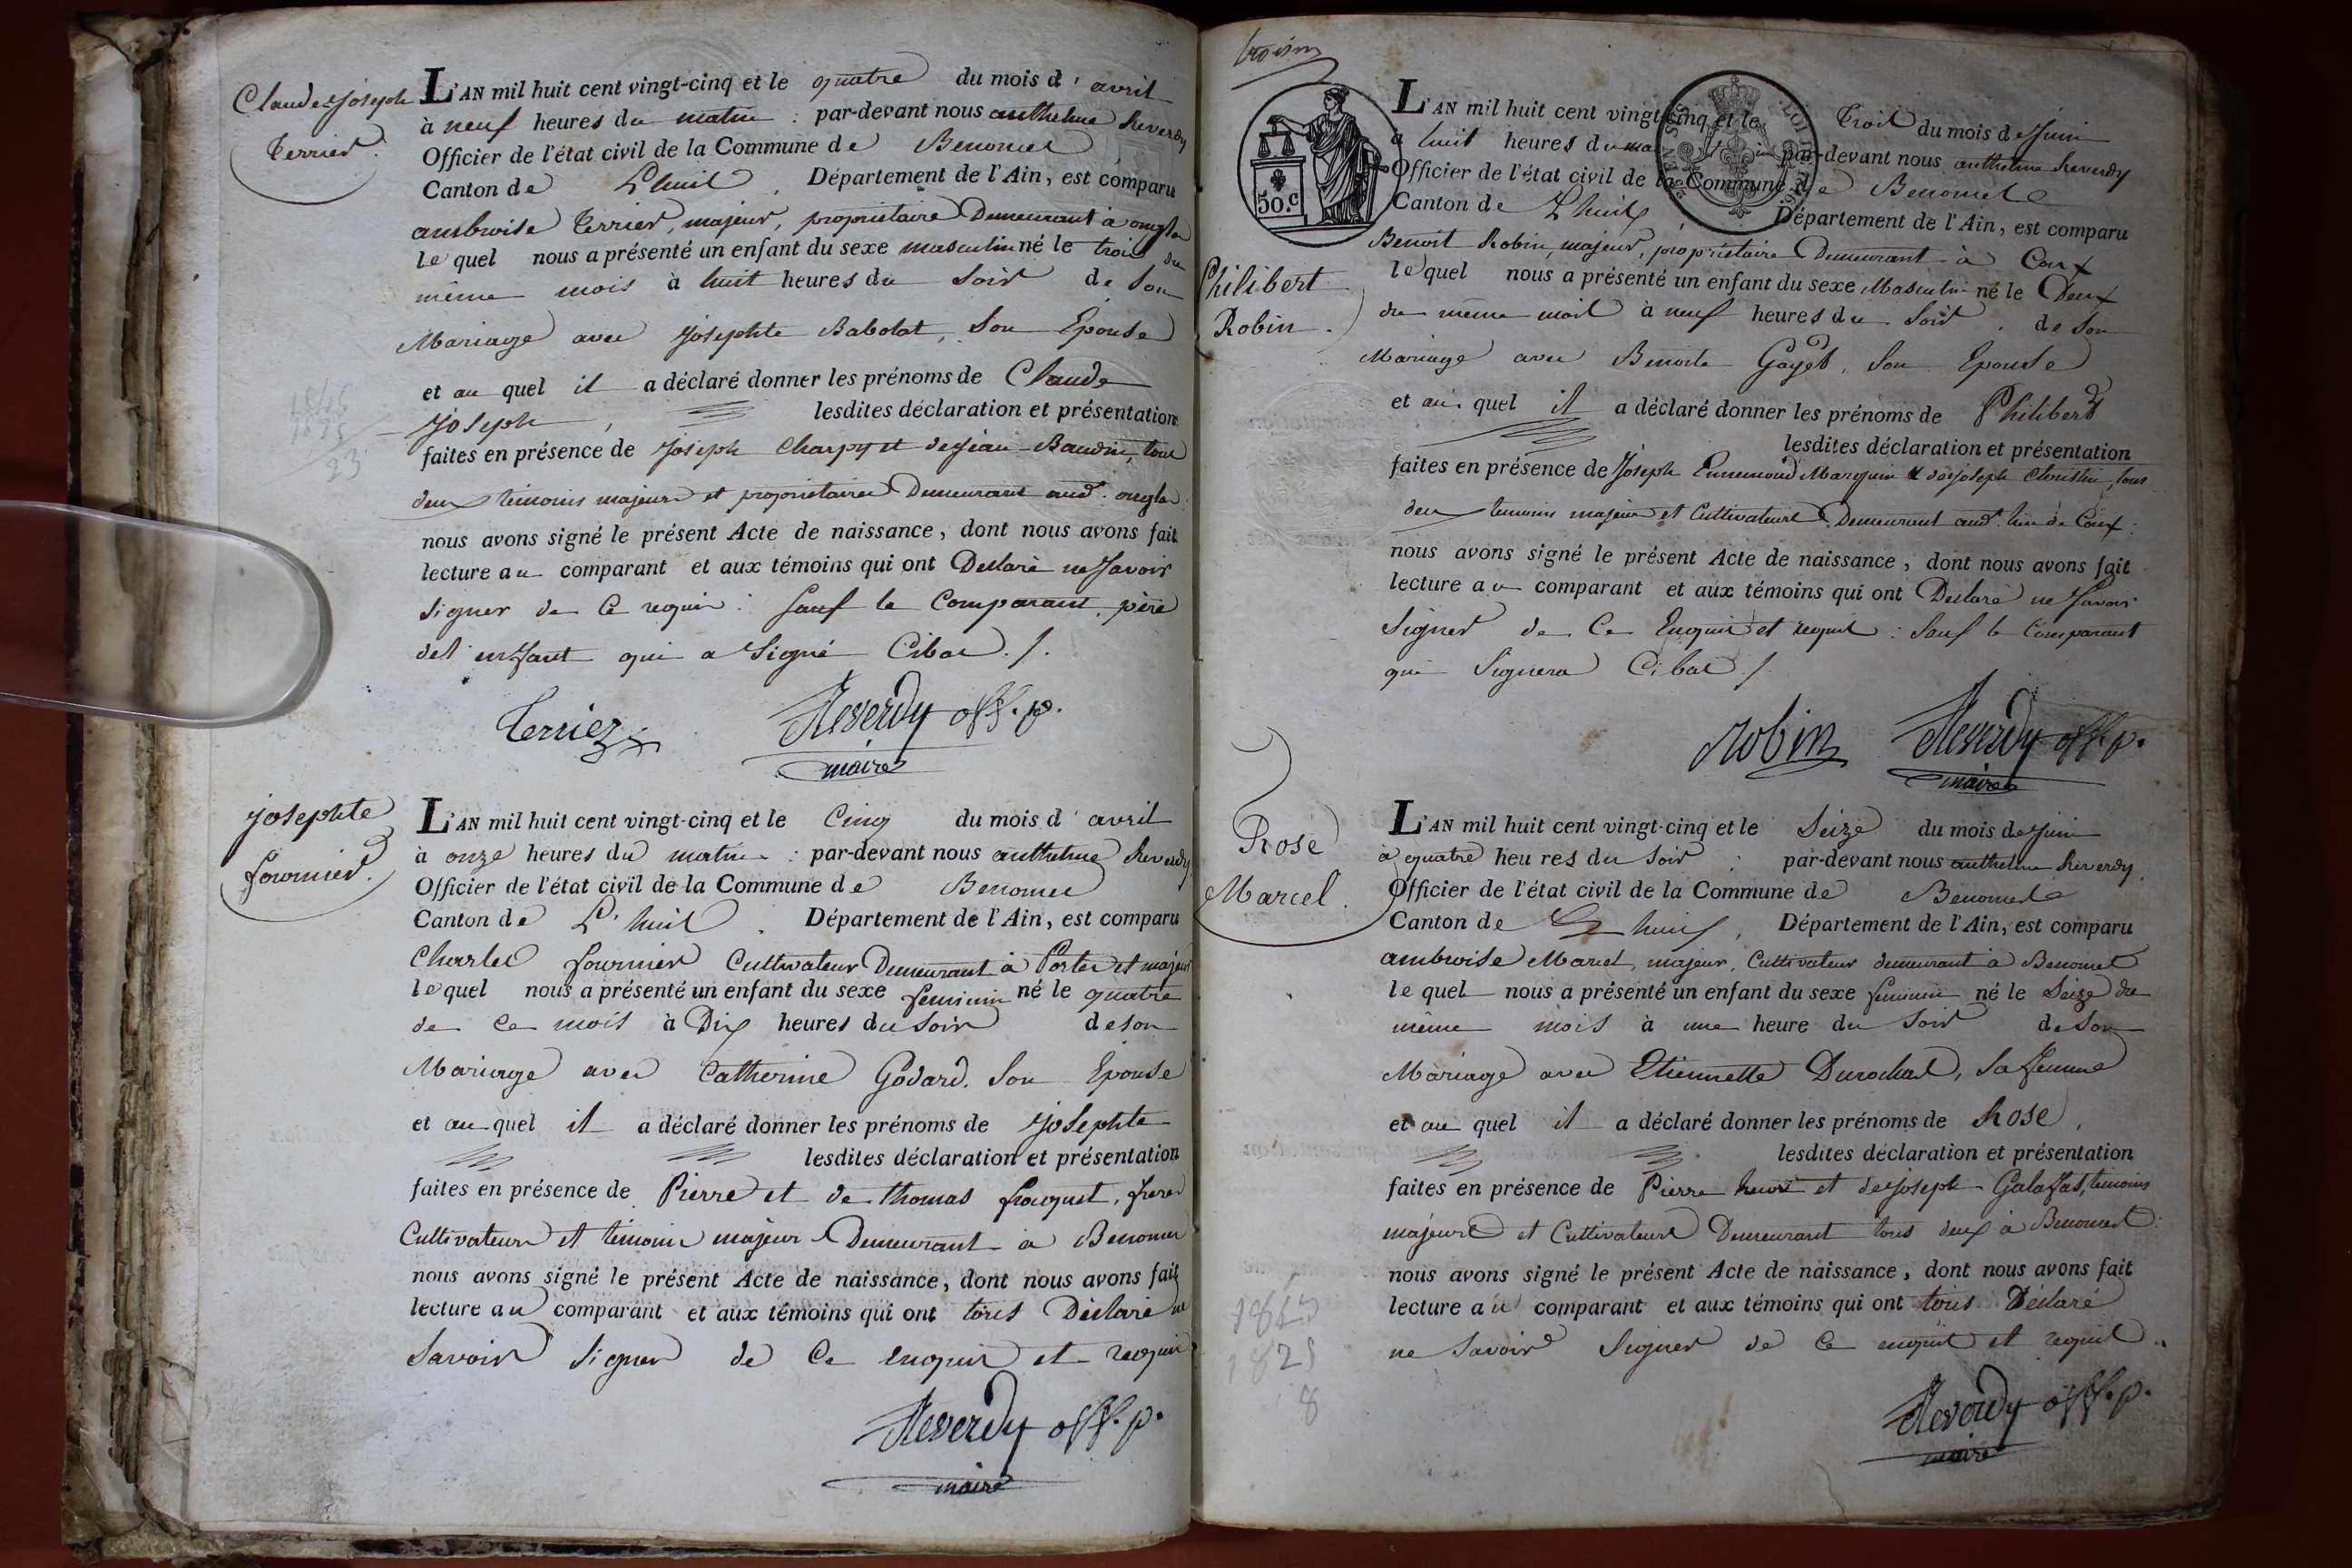 Claude Joseph
Terrier.
L'AN mil huit cent vingt-cinq et le quatre du mois d'avril
à neuf heures du matin : par-devant nous anthelme Reverdy
Officier de l'état civil de la Commune de Benonces
Canton de Lhuis, Département de l'Ain, est comparu
ambroise Terrier, majeur, propriétaire Demeurant à onglas
lequel nous a présenté un enfant du sexe masculin né le trois du
même mois à huit heures du soir de son
Mariage avec josephte Babolat, son Epouse
et au quel il a déclaré donner les prénoms de Claude
joseph, lesdites déclaration et présentation
faites en présence de joseph Charpy et de jean Baudin, tous
deux témoins majeurs et propriétaires Demeurant aud. onglas :
nous avons signé le présent Acte de naissance, dont nous avons fait
lecture au comparant et aux témoins qui ont Déclaré ne savoir
signer de ce requis : sauf le Comparant, père
de l'enfant qui a signé Cibas ./.
Terrier
Reverdy off. p.
maire
josephte
fournier.
L'AN mil huit cent vingt-cinq et le Cinq du mois d'avril
à onze heures du matin : par-devant nous anthelme Reverdy
Officier de l'état civil de la Commune de Benonces
Canton de L'huis, Département de l'Ain, est comparu
Charles fournier Cultivateur Demeurant à Portes et majeur
lequel nous a présenté un enfant du sexe feminin né le quatre
de ce mois à Dix heures du soir de son
Mariage avec Catherine Godard, son Epouse
et au quel il a déclaré donner les prénoms de josephte
lesdites déclaration et présentation
faites en présence de Pierre et de thomas frouquet, frères
Cultivateurs et témoins majeurs Demeurant à Benonces
nous avons signé le présent Acte de naissance, dont nous avons fait
lecture au comparant et aux témoins qui ont tous Déclaré ne
savoir signer de Ce enquis et requis
Reverdy off. p.
maire
50.c
L'AN mil huit cent vingt-cinq et le Trois du mois de juin
à huit heures du par-devant nous anthelme Reverdy
Officier de l'état civil de la Commune de Benonces
Canton de Lhuis, Département de l'Ain, est comparu
Benoit Robin, majeur, propriétaire Demeurant à Coux
lequel nous a présenté un enfant du sexe Masculin né le Deux
du même mois à neuf heures du soir, de son
Mariage avec Benoite Gayet, son Epouse
et au quel il a déclaré donner les prénoms de Philibert
lesdites déclaration et présentation
faites en présence de Joseph Ennemond Marquis et de joseph Christin, tous
deux témoins majeurs et Cultivateurs Demeurant aud. lieu de Coux :
nous avons signé le présent Acte de naissance, dont nous avons fait
lecture au comparant et aux témoins qui ont Déclaré ne savoir
signer de Ce Enquis et requis : sauf le Comparant
qui signera Cibas /.
Philibert
Robin.
Robin
Reverdy off. p.
maire
Rose
Marcel.
L'AN mil huit cent vingt-cinq et le Seize du mois de juin
à quatre heures du soir : par-devant nous anthelme Reverdy
Officier de l'état civil de la Commune de Benonces
Canton de Lhuis, Département de l'Ain, est comparu
ambroise Marcel, majeur, Cultivateur demeurant à Benonces
lequel nous a présenté un enfant du sexe feminin né le Seize du
même mois à une heure du soir de son
Mariage avec Etiennette Durochat, sa femme
et au quel il a déclaré donner les prénoms de Rose,
lesdites déclaration et présentation
faites en présence de Pierre henri et de joseph Galafas, témoins
majeurs et Cultivateurs Demeurant tous deux à Benonces :
nous avons signé le présent Acte de naissance, dont nous avons fait
lecture au comparant et aux témoins qui ont tous Déclaré
ne savoir signer de Ce enquis et requis.
Reverdy off. p.
maire